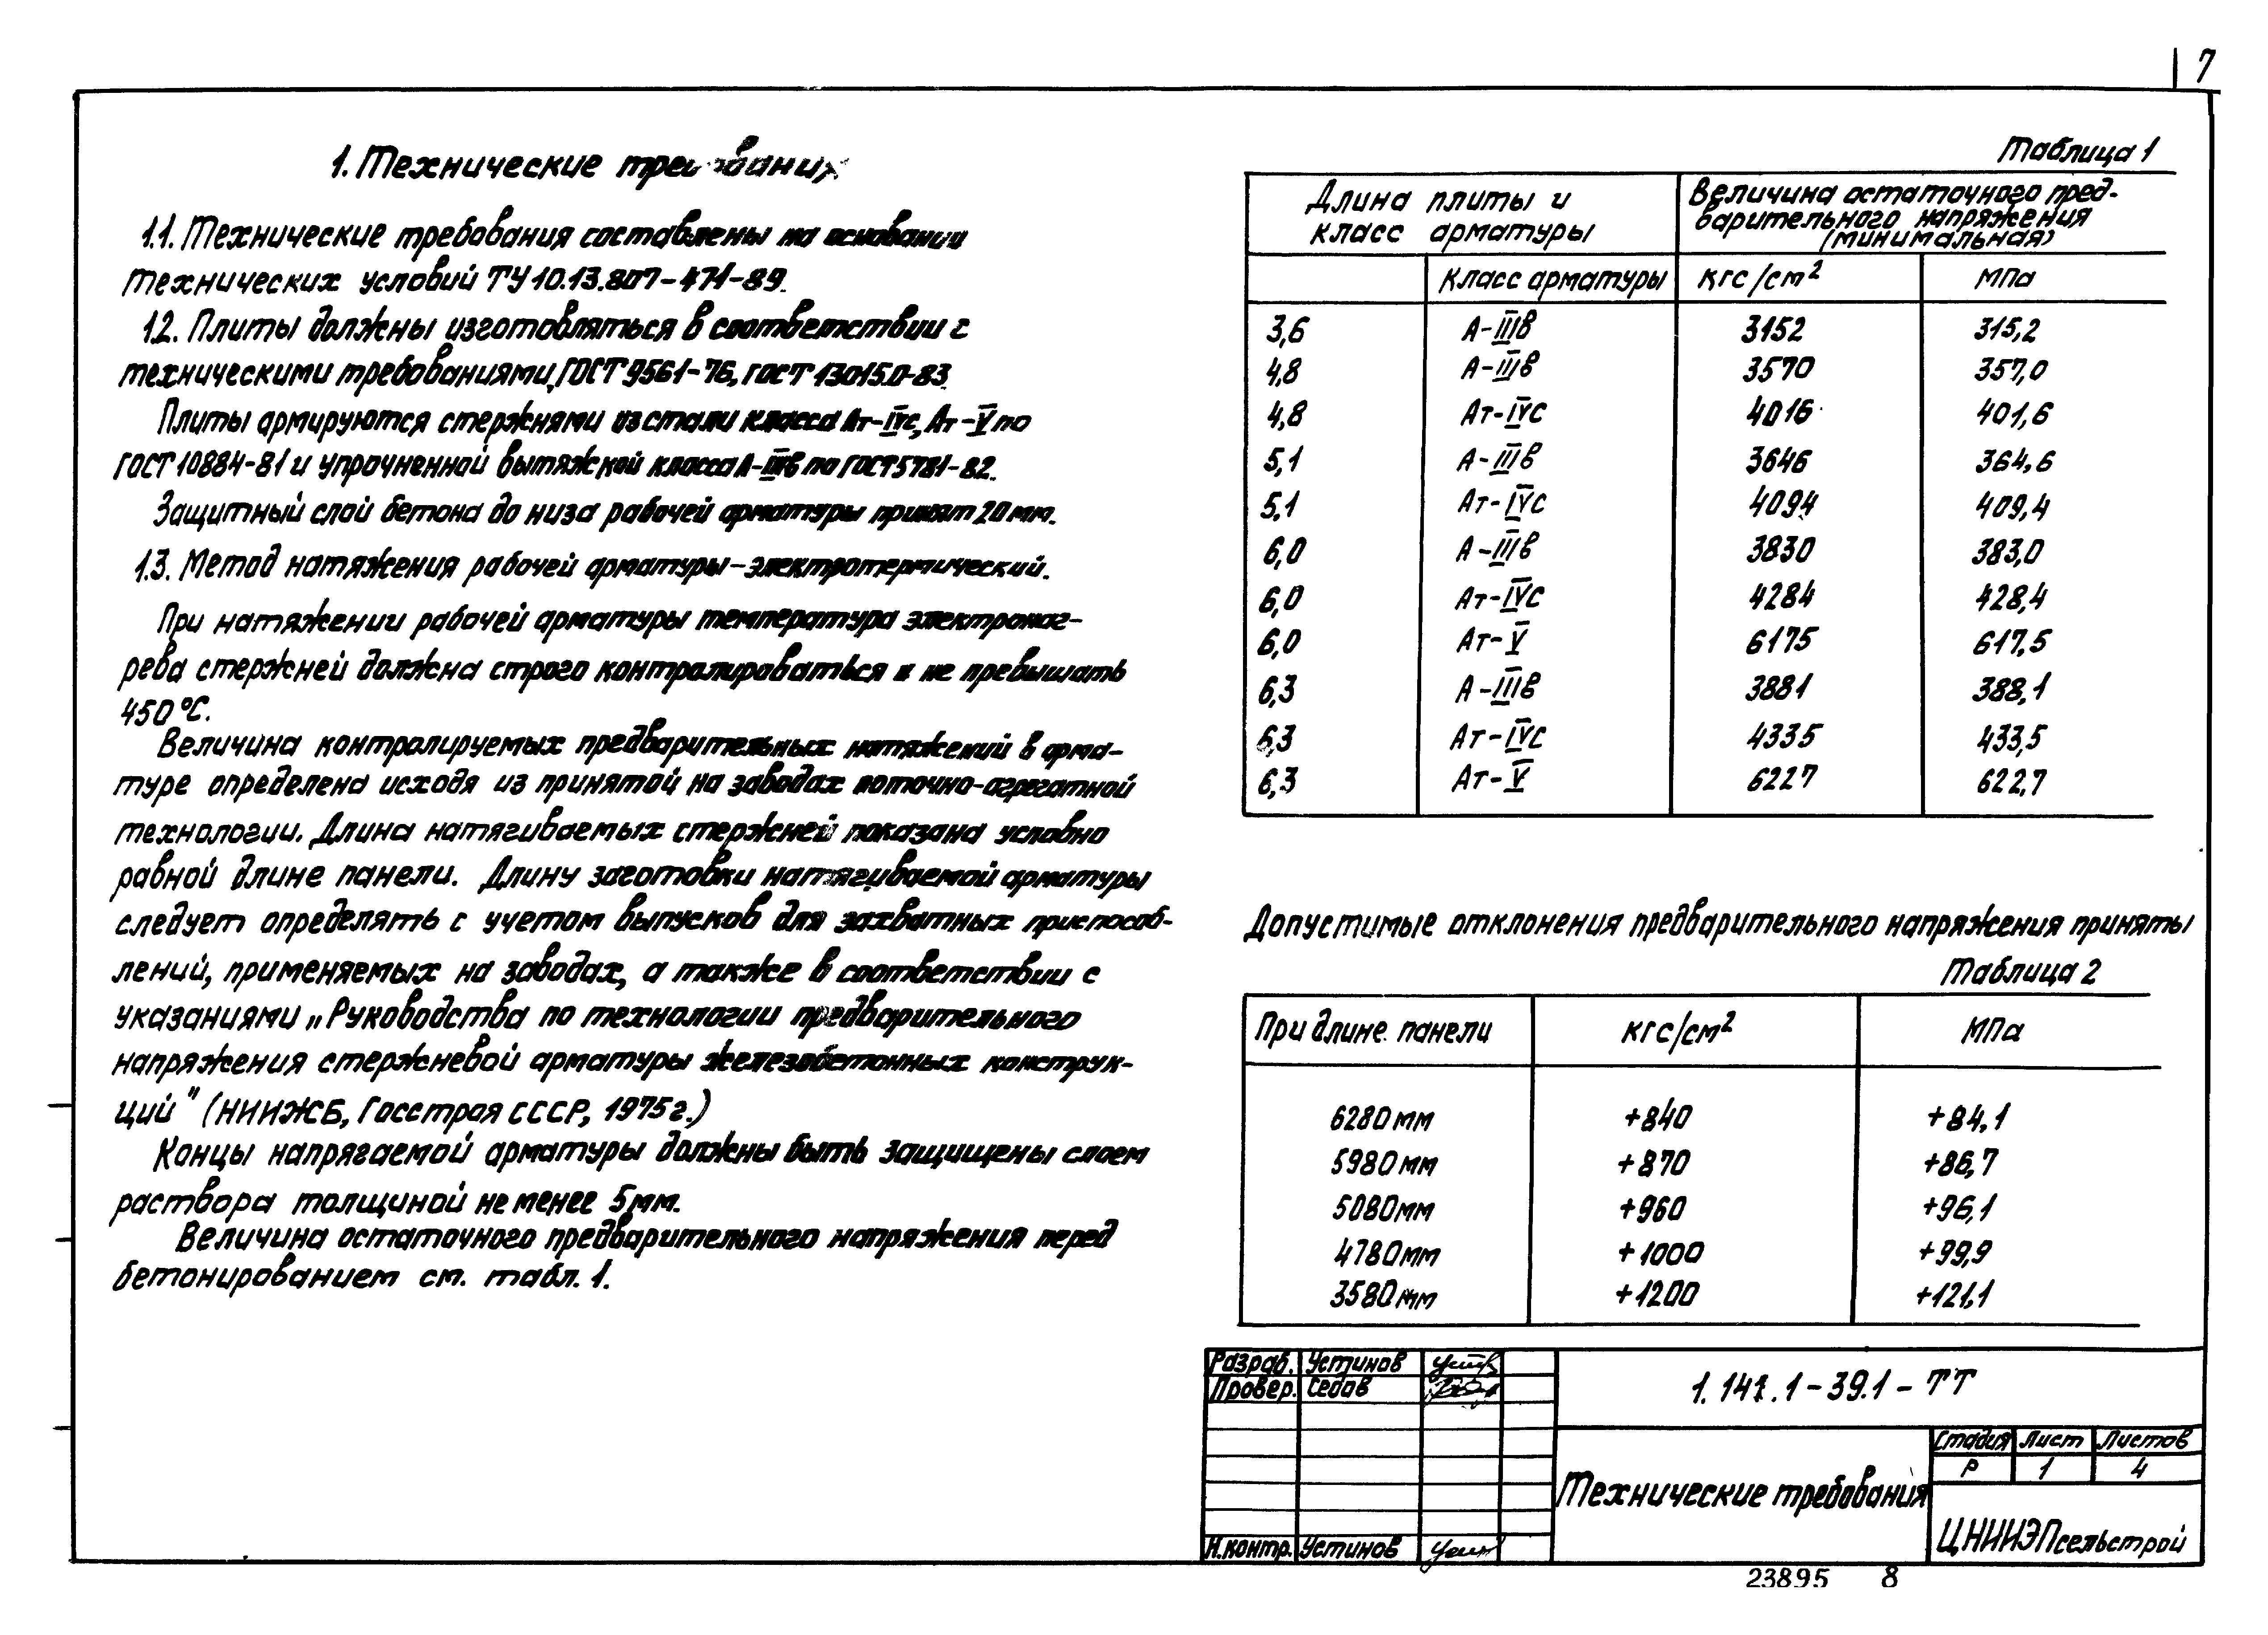 7
1. Технические требования
1.1. Технические требования составлены на основании
технических условий ТУ 10.13.807-471-89.
1.2. Плиты должны изготовляться в соответствии с
техническими требованиями, ГОСТ 9561-76, ГОСТ 13015.0-83.
Плиты армируются стержнями из стали класса Ат-IVс, Ат-V по
ГОСТ 10884-81 и упрочненной вытяжкой класса А-IIIв по ГОСТ 5781-82.
Защитный слой бетона до низа рабочей арматуры принят 20мм.
1.3. Метод натяжения рабочей арматуры-электротермический.
При натяжении рабочей арматуры температура электронаг-
рева стержней должна строго контролироваться и не превышать
450°С.
Величина контролируемых предварительных натяжений в арма-
туре определена исходя из принятой на заводах поточно-агрегатной
технологии. Длина натягиваемых стержней показана условно
равной длине панели. Длину заготовки натягиваемой арматуры
следует определять с учетом выпусков для захватных приспособ-
лений, применяемых на заводах, а также в соответствии с
указаниями „Руководства по технологии предварительного
напряжения стержневой арматуры железобетонных конструк-
ций" (НИИЖБ, Госстроя СССР, 1975г.)
Концы напрягаемой арматуры должны быть защищены слоем
раствора толщиной не менее 5мм.
Величина остаточного предварительного напряжения перед
бетонированием см. табл. 1.
Таблица 1
Длина плиты и класс арматуры | Величина остаточного пред-
варительного напряжения
(минимальная)
Класс арматуры | кгс/см² | МПа
3,6 | А-IIIв | 3152 | 315,2
4,8 | А-IIIв | 3570 | 357,0
4,8 | Ат-IVС | 4016 | 401,6
5,1 | А-IIIв | 3646 | 364,6
5,1 | Ат-IVС | 4094 | 409,4
6,0 | А-IIIв | 3830 | 383,0
6,0 | Ат-IVС | 4284 | 428,4
6,0 | Ат-V | 6175 | 617,5
6,3 | А-IIIв | 3881 | 388,1
6,3 | Ат-IVС | 4335 | 433,5
6,3 | Ат-V | 6227 | 622,7
Допустимые отклонения предварительного напряжения приняты
Таблица 2
При длине панели | кгс/см² | МПа
6280мм | +840 | +84,1
5980мм | +870 | +86,7
5080мм | +960 | +96,1
4780мм | +1000 | +99,9
3580мм | +1200 | +121,1
Разраб. Устинов
Провер. Седов
Н.контр. Устинов
1.141.1-39.1-ТТ
Технические требования
Стадия Лист Листов
Р 1 4
ЦНИИЭПсельстрой
23895 8